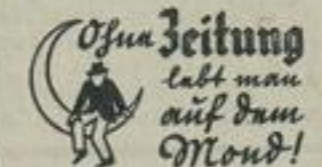 Ohne Zeitung
lebt man
auf dem
Mond!